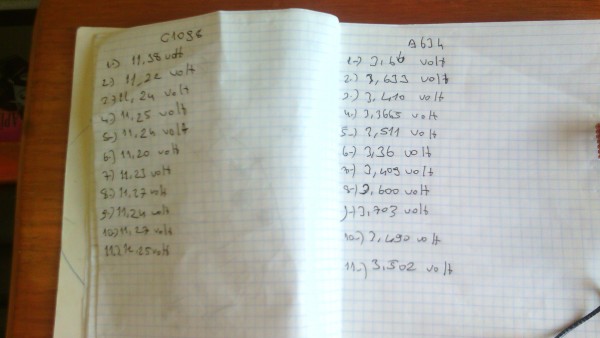 C1096
1-) 11,38 volt
2-) 11,22 volt
3-) 11,24 volt
4-) 11,25 volt
5-) 11,24 volt
6-) 11,20 volt
7-) 11,23 volt
8-) 11,27 volt
9-) 11,24 volt
10-) 11,27 volt
11-) 11,25 volt
A634
1-) 3,66 volt
2-) 3,633 volt
3-) 3,410 volt
4-) 3,3645 volt
5-) 3,511 volt
6-) 3,36 volt
7-) 3,409 volt
8-) 3,600 volt
9-) 3,703 volt
10-) 3,490 volt
11-) 3,502 volt